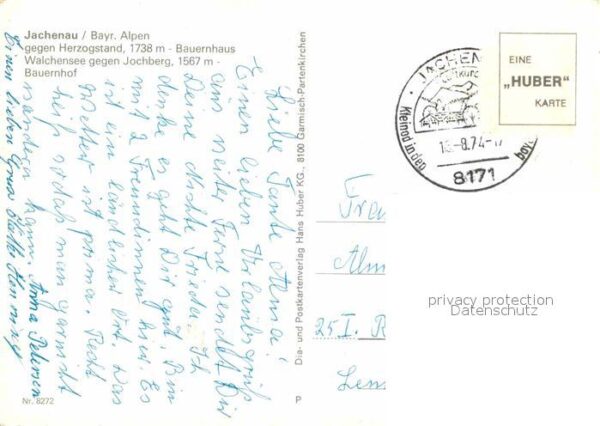 Jachenau / Bayr. Alpen
gegen Herzogstand, 1738 m - Bauernhaus
Walchensee gegen Jochberg, 1567 m -
Bauernhof
Liebe Tante Alma!
Einen lieben Urlaubsgruß
aus weiter Ferne sendet Dir
Deine Nichte Frieda. Ich
denke es geht Dir gut. Bin
mit 2 Freundinnen hier. Es
ist ein ländlicher Ort. Das
Wetter ist prima. Recht
heiß sodaß man garnicht
wandern kann. Anna Petersen
Einen lieben Gruß
Nr. 8272
Dia- und Postkartenverlag Hans Huber KG., 8100 Garmisch-Partenkirchen
P
JACHEN
Kleinod in den
-8.74-17
bayer
8171
EINE
„HUBER"
KARTE
Frau
Alm
25 I.
privacy protection
Datenschutz